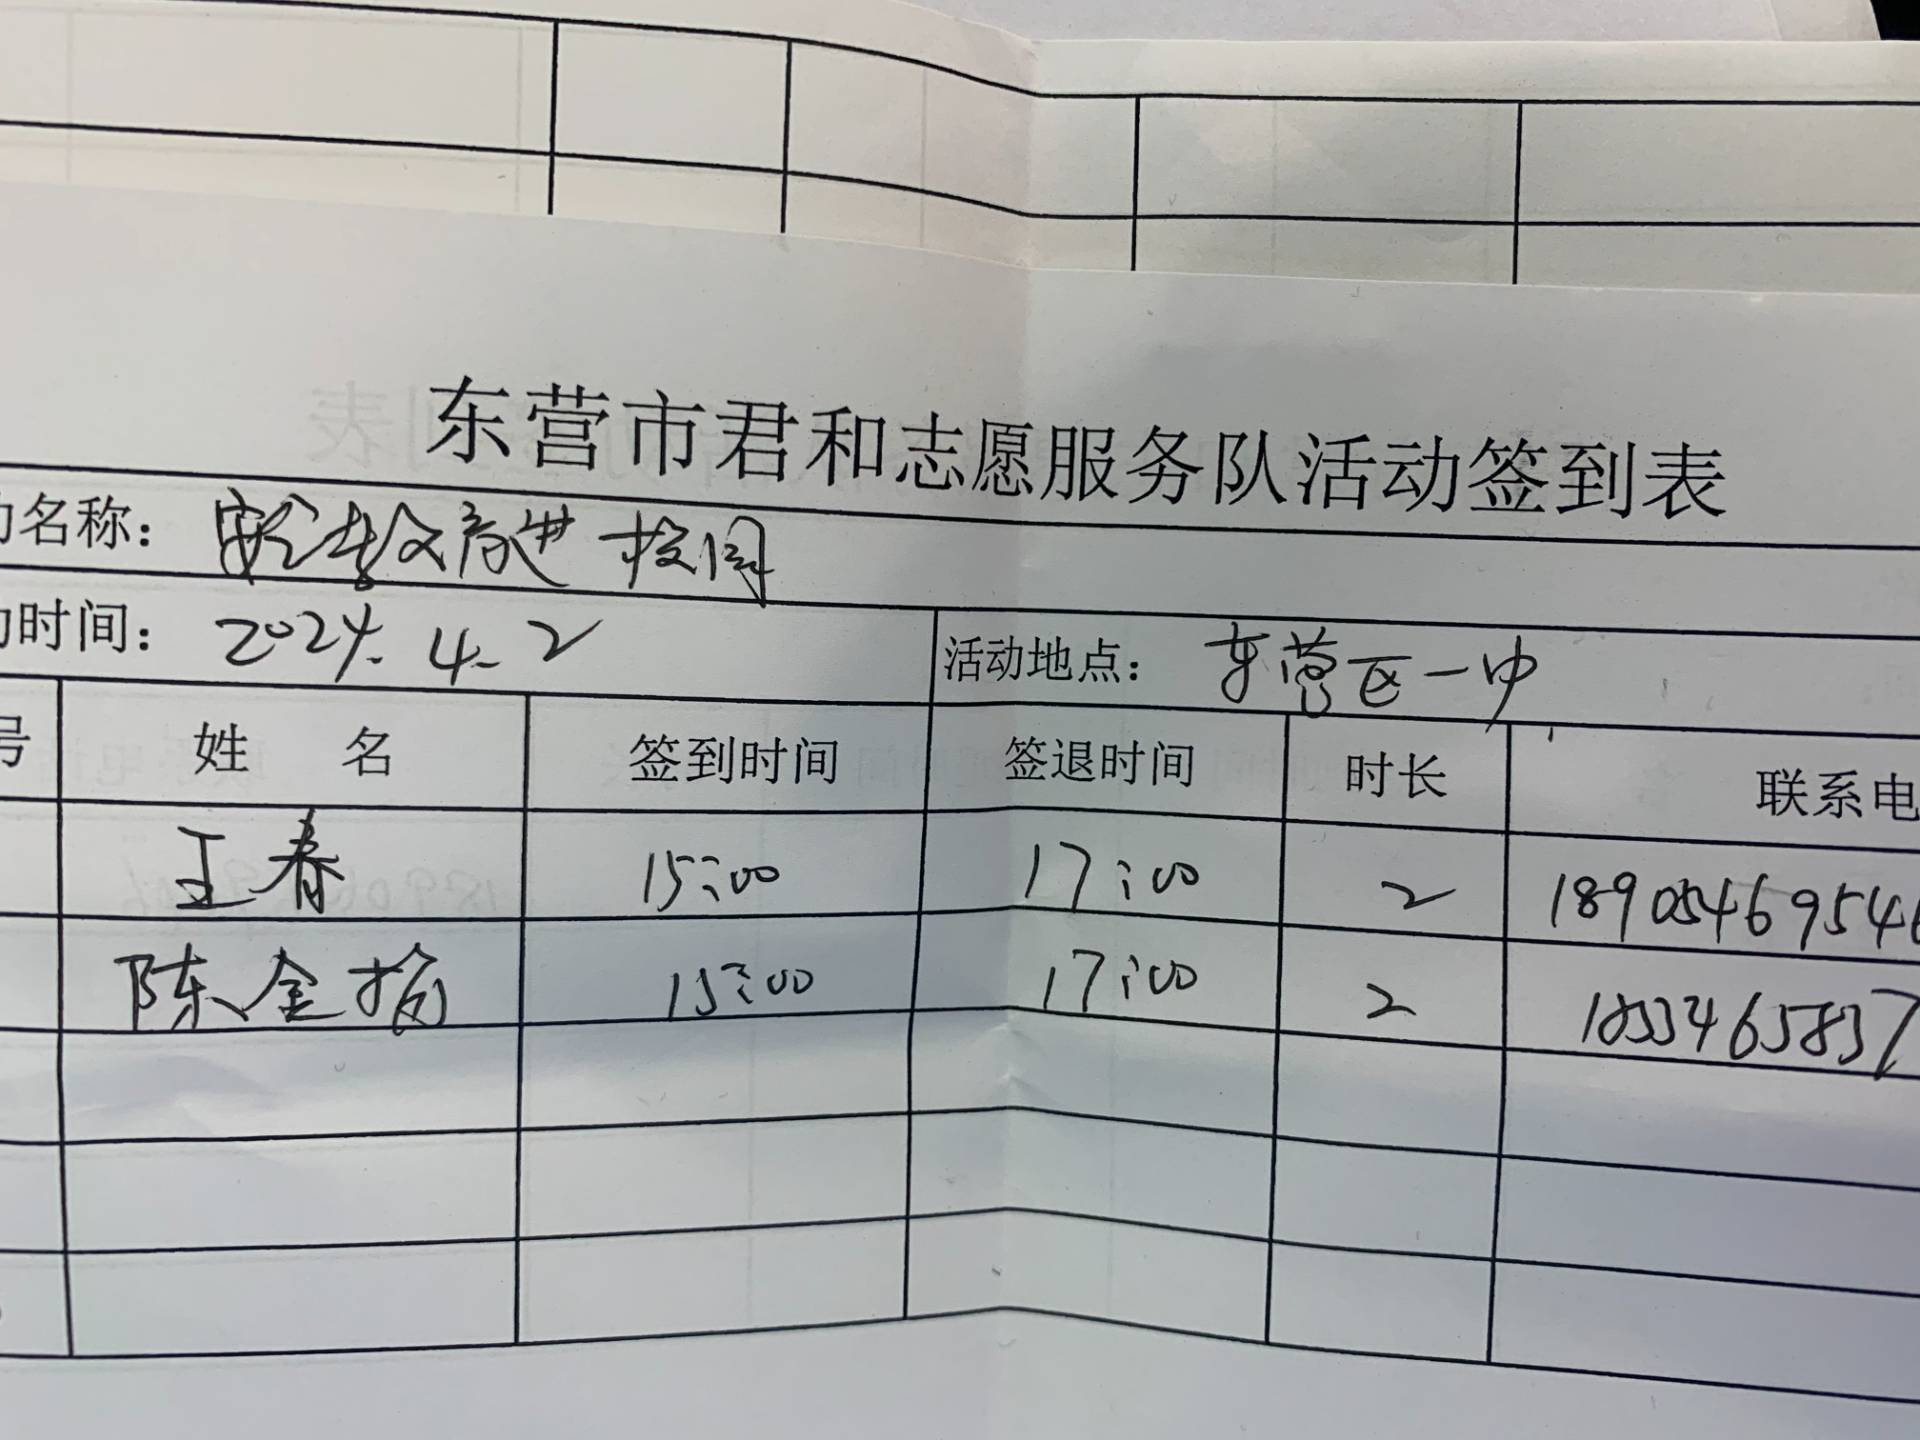 东营市君和志愿服务队活动签到表
动名称：安全教育进校园
动时间：2024.4.2 活动地点：东营区一中
号 姓 名 签到时间 签退时间 时长 联系电
王春 15:00 17:00 2 1890546954
陈金 15:00 17:00 2 1853465837